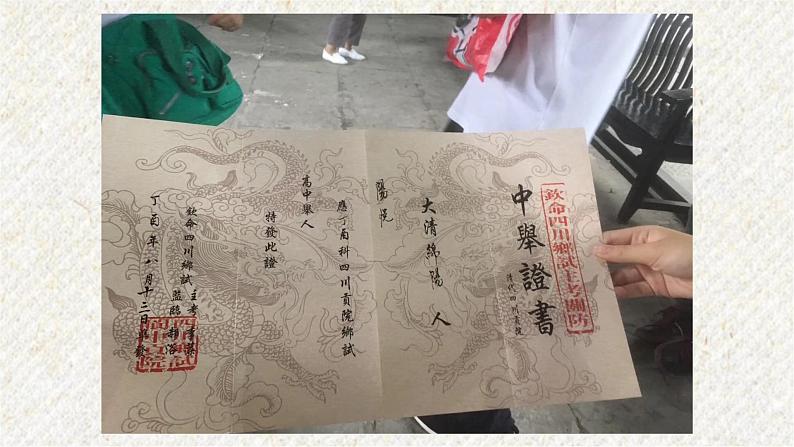 欽命四川鄉試主考關防
中舉證書
清代四川貢院
大清綿陽人
陽悅
應丁酉科四川貢院鄉試
高中舉人
特發此證
欽命四川鄉試
主考
監臨
丁酉年八月十三日
發